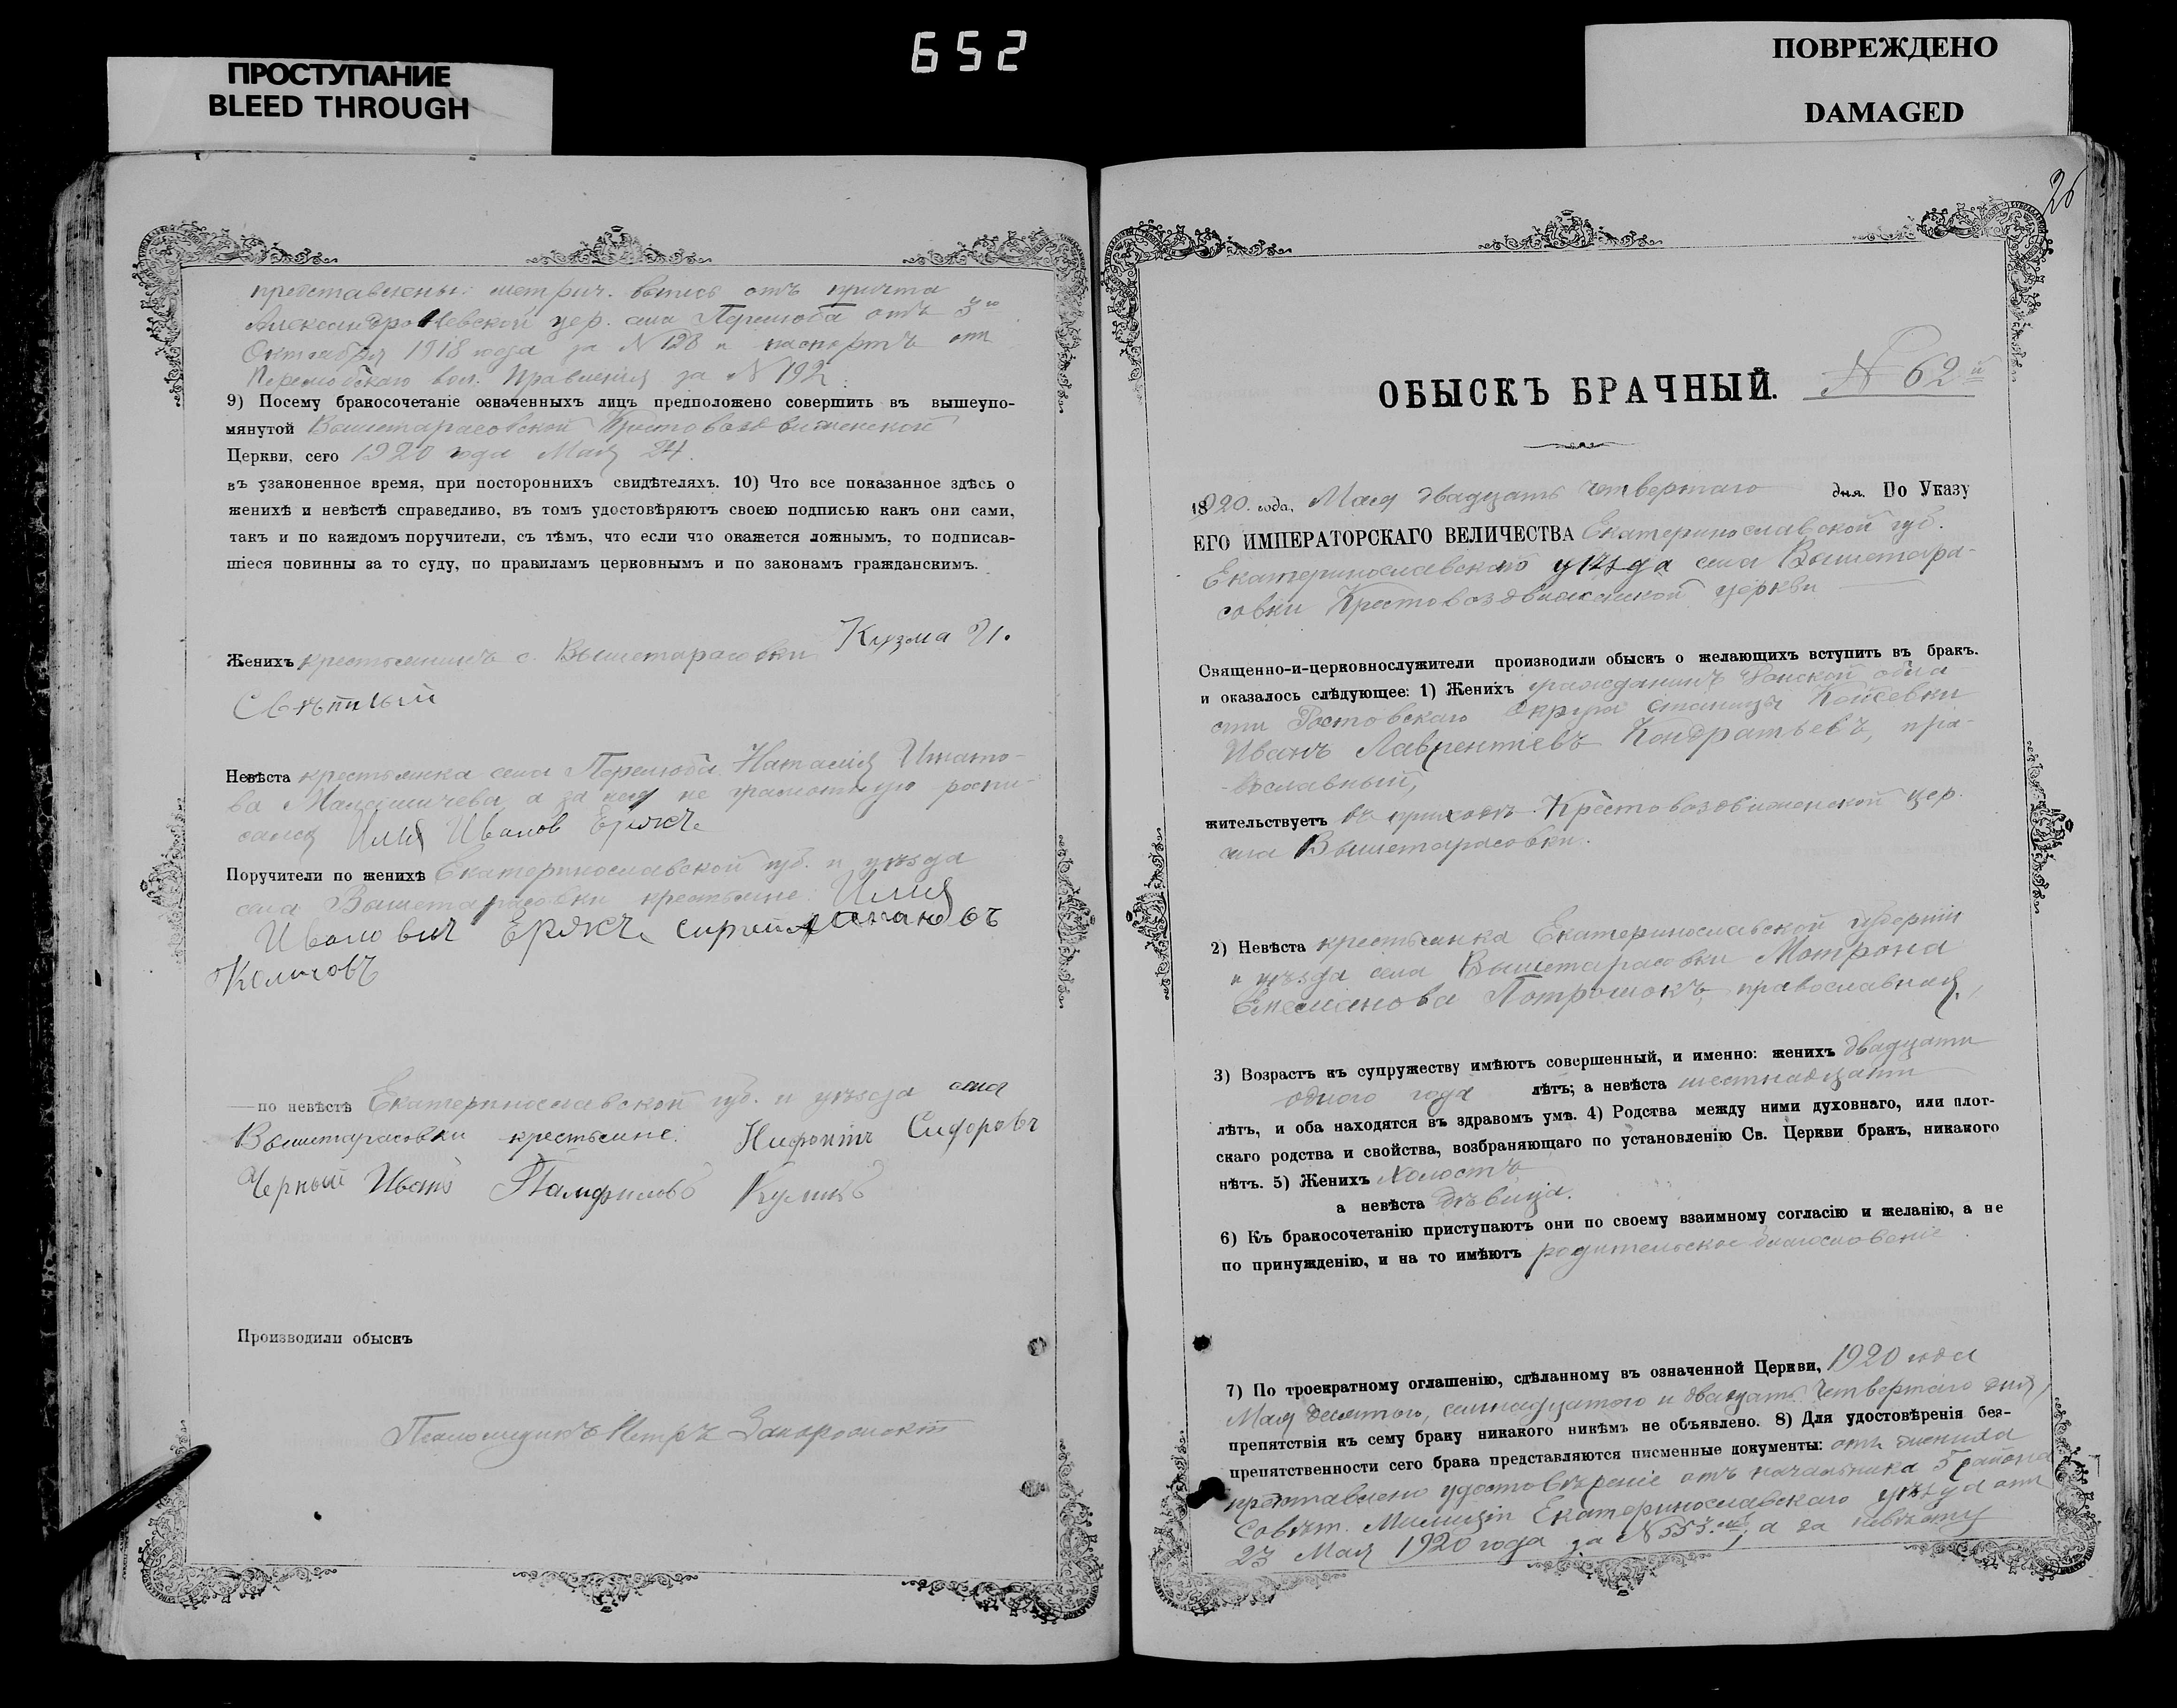 652
ПРОСТУПАНИЕ
BLEED THROUGH
ПОВРЕЖДЕНО
DAMAGED
представлены: метрич. выпись отъ причта
Александро Невской цер. села Перелюба отъ 3го
Октября 1918 года за N 128 и паспортъ отъ
Перелюбскаго вол. Правленія за N 192.
9) Посему бракосочетаніе означенныхъ лицъ предположено совершить въ вышеупо-
мянутой Вышетарасовской Крестовоздвиженской
Церкви, сего 1920 года Мая 24.
въ узаконенное время, при постороннихъ свидѣтеляхъ. 10) Что все показанное здѣсь о
женихѣ и невѣстѣ справедливо, въ томъ удостовѣряютъ своею подписью какъ они сами,
такъ и по каждомъ поручители, съ тѣмъ, что если что окажется ложнымъ, то подписав-
шіеся повинны за то суду, по правиламъ церковнымъ и по законамъ гражданскимъ.
Женихъ крестьянинъ с. Вышетарасовки Кузма И.
Невѣста крестьянка села Перелюба Наталія Игнато-
ва а за нея не грамотную роспи-
сался Илия Иванов
Поручители по женихѣ Екатеринославской губ. и уѣзда
села Вышетарасовки крестьяне: Илия
Иванович
—по невѣстѣ Екатеринославской губ. и уѣзда села
Вышетарасовки крестьяне: Нифонтъ Сидоровъ
Черный Иванъ Памфиловъ Куликъ
Производили обыскъ
Псаломщикъ Петръ
26
ОБЫСКЪ БРАЧНЫЙ. N 62й
18920. года, Мая двадцать четвертаго дня. По Указу
ЕГО ИМПЕРАТОРСКАГО ВЕЛИЧЕСТВА Екатеринославской губ.
Екатеринославскаго уѣзда села Вышетара-
совки Крестовоздвиженской церкви
Священно-и-церковнослужители производили обыскъ о желающихъ вступить въ бракъ.
и оказалось слѣдующее: 1) Женихъ гражданинъ Донской обла-
сти Ростовскаго Округа станицы
Иванъ Лаврентіевъ Кондратьевъ, пра-
вославный,
жительствуетъ въ приходѣ Крестовоздвиженской цер.
села Вышетарасовки.
2) Невѣста крестьянка Екатеринославской губерніи
и уѣзда села Вышетарасовки Матрона
Емельянова православная,
3) Возрастъ къ супружеству имѣютъ совершенный, и именно: женихъ двадцати
одного года лѣтъ; а невѣста шестнадцати
лѣтъ, и оба находятся въ здравомъ умѣ. 4) Родства между ними духовнаго, или плот-
скаго родства и свойства, возбраняющаго по установленію Св. Церкви бракъ, никакого
нѣтъ. 5) Женихъ холостъ
а невѣста дѣвица.
6) Къ бракосочетанію приступаютъ они по своему взаимному согласію и желанію, а не
по принужденію, и на то имѣютъ родительское благословеніе
7) По троекратному оглашенію, сдѣланному въ означенной Церкви, 1920 года
Мая десятого, семнадцатого и двадцать четвертаго дня,
препятствія къ сему браку никакого никѣмъ не объявлено. 8) Для удостовѣренія без-
препятственности сего брака представляются писменные документы: отъ жениха
представлено удостовѣреніе отъ начальника 5 района
Совѣт. Милиціи Екатеринославскаго уѣзда отъ
23 Мая 1920 года за N 553; а за невѣсту